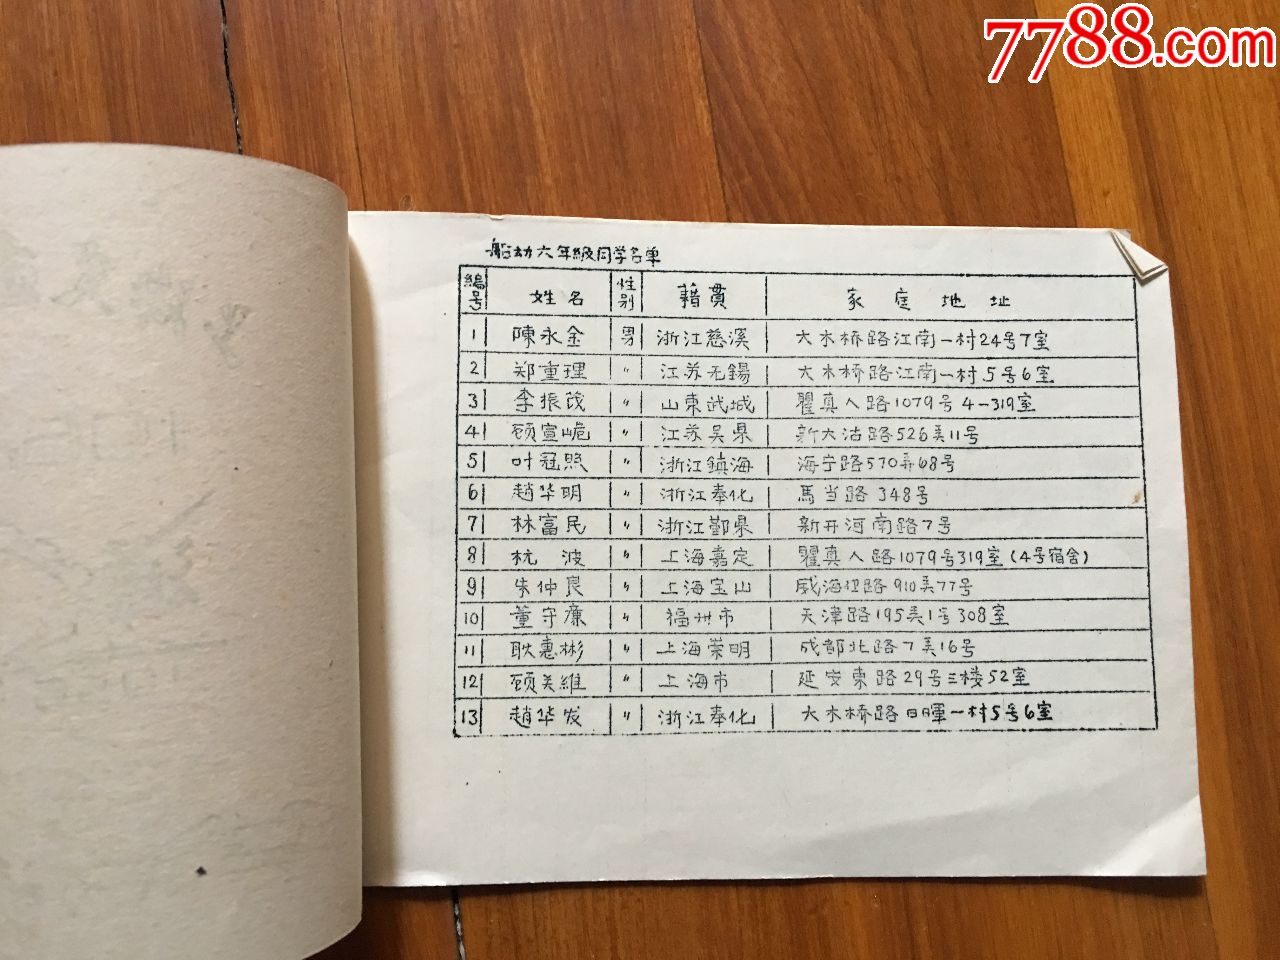 7788.com
船动六年級同学名单
編号 姓名 性别 籍貫 家庭地址
1 陳永金 男 浙江慈溪 大木桥路江南一村24号7室
2 郑重理 〃 江苏无錫 大木桥路江南一村5号6室
3 李振茂 〃 山東武城 瞿真人路1079号4-319室
4 顾宣 〃 江苏吴県 新大沽路526弄11号
5 叶冠照 〃 浙江鎮海 海宁路570弄68号
6 趙华明 〃 浙江奉化 馬当路348号
7 林富民 〃 浙江鄞県 新开河南路7号
8 杭波 〃 上海嘉定 瞿真人路1079号319室(4号宿舍)
9 朱仲良 〃 上海宝山 威海卫路910弄77号
10 董守廉 〃 福州市 天津路195弄1号308室
11 耿惠彬 〃 上海崇明 成都北路7弄16号
12 顾美維 〃 上海市 延安東路29号三楼52室
13 趙华发 〃 浙江奉化 大木桥路日暉一村5号6室